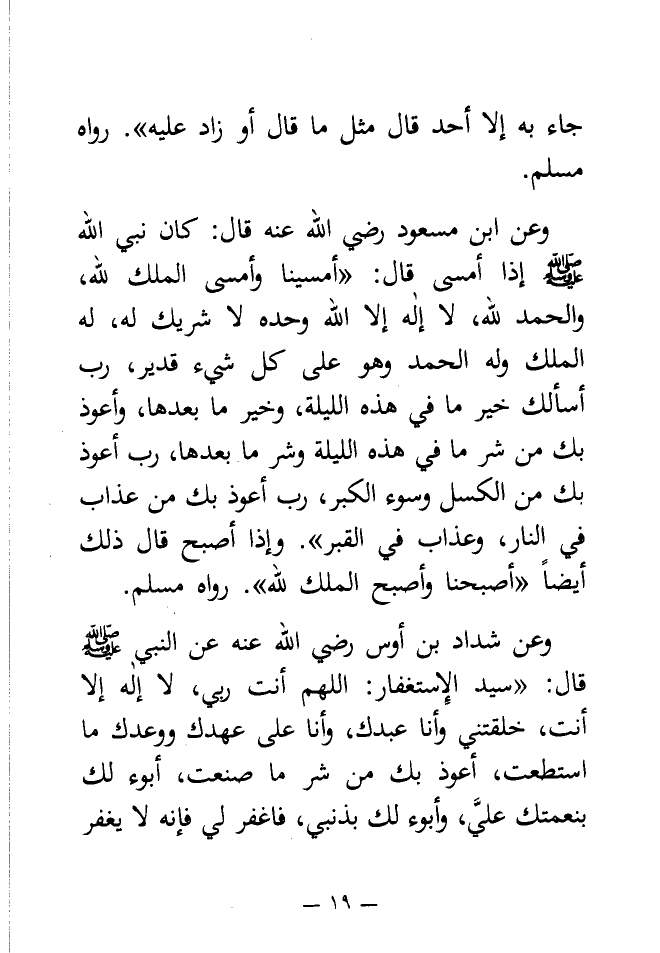 جاء به إلا أحد قال مثل ما قال أو زاد عليه». رواه
مسلم.
وعن ابن مسعود رضي الله عنه قال: كان نبي الله
ﷺ إذا أمسى قال: «أمسينا وأمسى الملك لله،
والحمد لله، لا إلٰه إلا الله وحده لا شريك له، له
الملك وله الحمد وهو على كل شيء قدير، رب
أسألك خير ما في هذه الليلة، وخير ما بعدها، وأعوذ
بك من شر ما في هذه الليلة وشر ما بعدها، رب أعوذ
بك من الكسل وسوء الكبر، رب أعوذ بك من عذاب
في النار، وعذاب في القبر». وإذا أصبح قال ذلك
أيضاً «أصبحنا وأصبح الملك لله». رواه مسلم.
وعن شداد بن أوس رضي الله عنه عن النبي ﷺ
قال: «سيد الإستغفار: اللهم أنت ربي، لا إلٰه إلا
أنت، خلقتني وأنا عبدك، وأنا على عهدك ووعدك ما
استطعت، أعوذ بك من شر ما صنعت، أبوء لك
بنعمتك عليَّ، وأبوء لك بذنبي، فاغفر لي فإنه لا يغفر
— ١٩ —